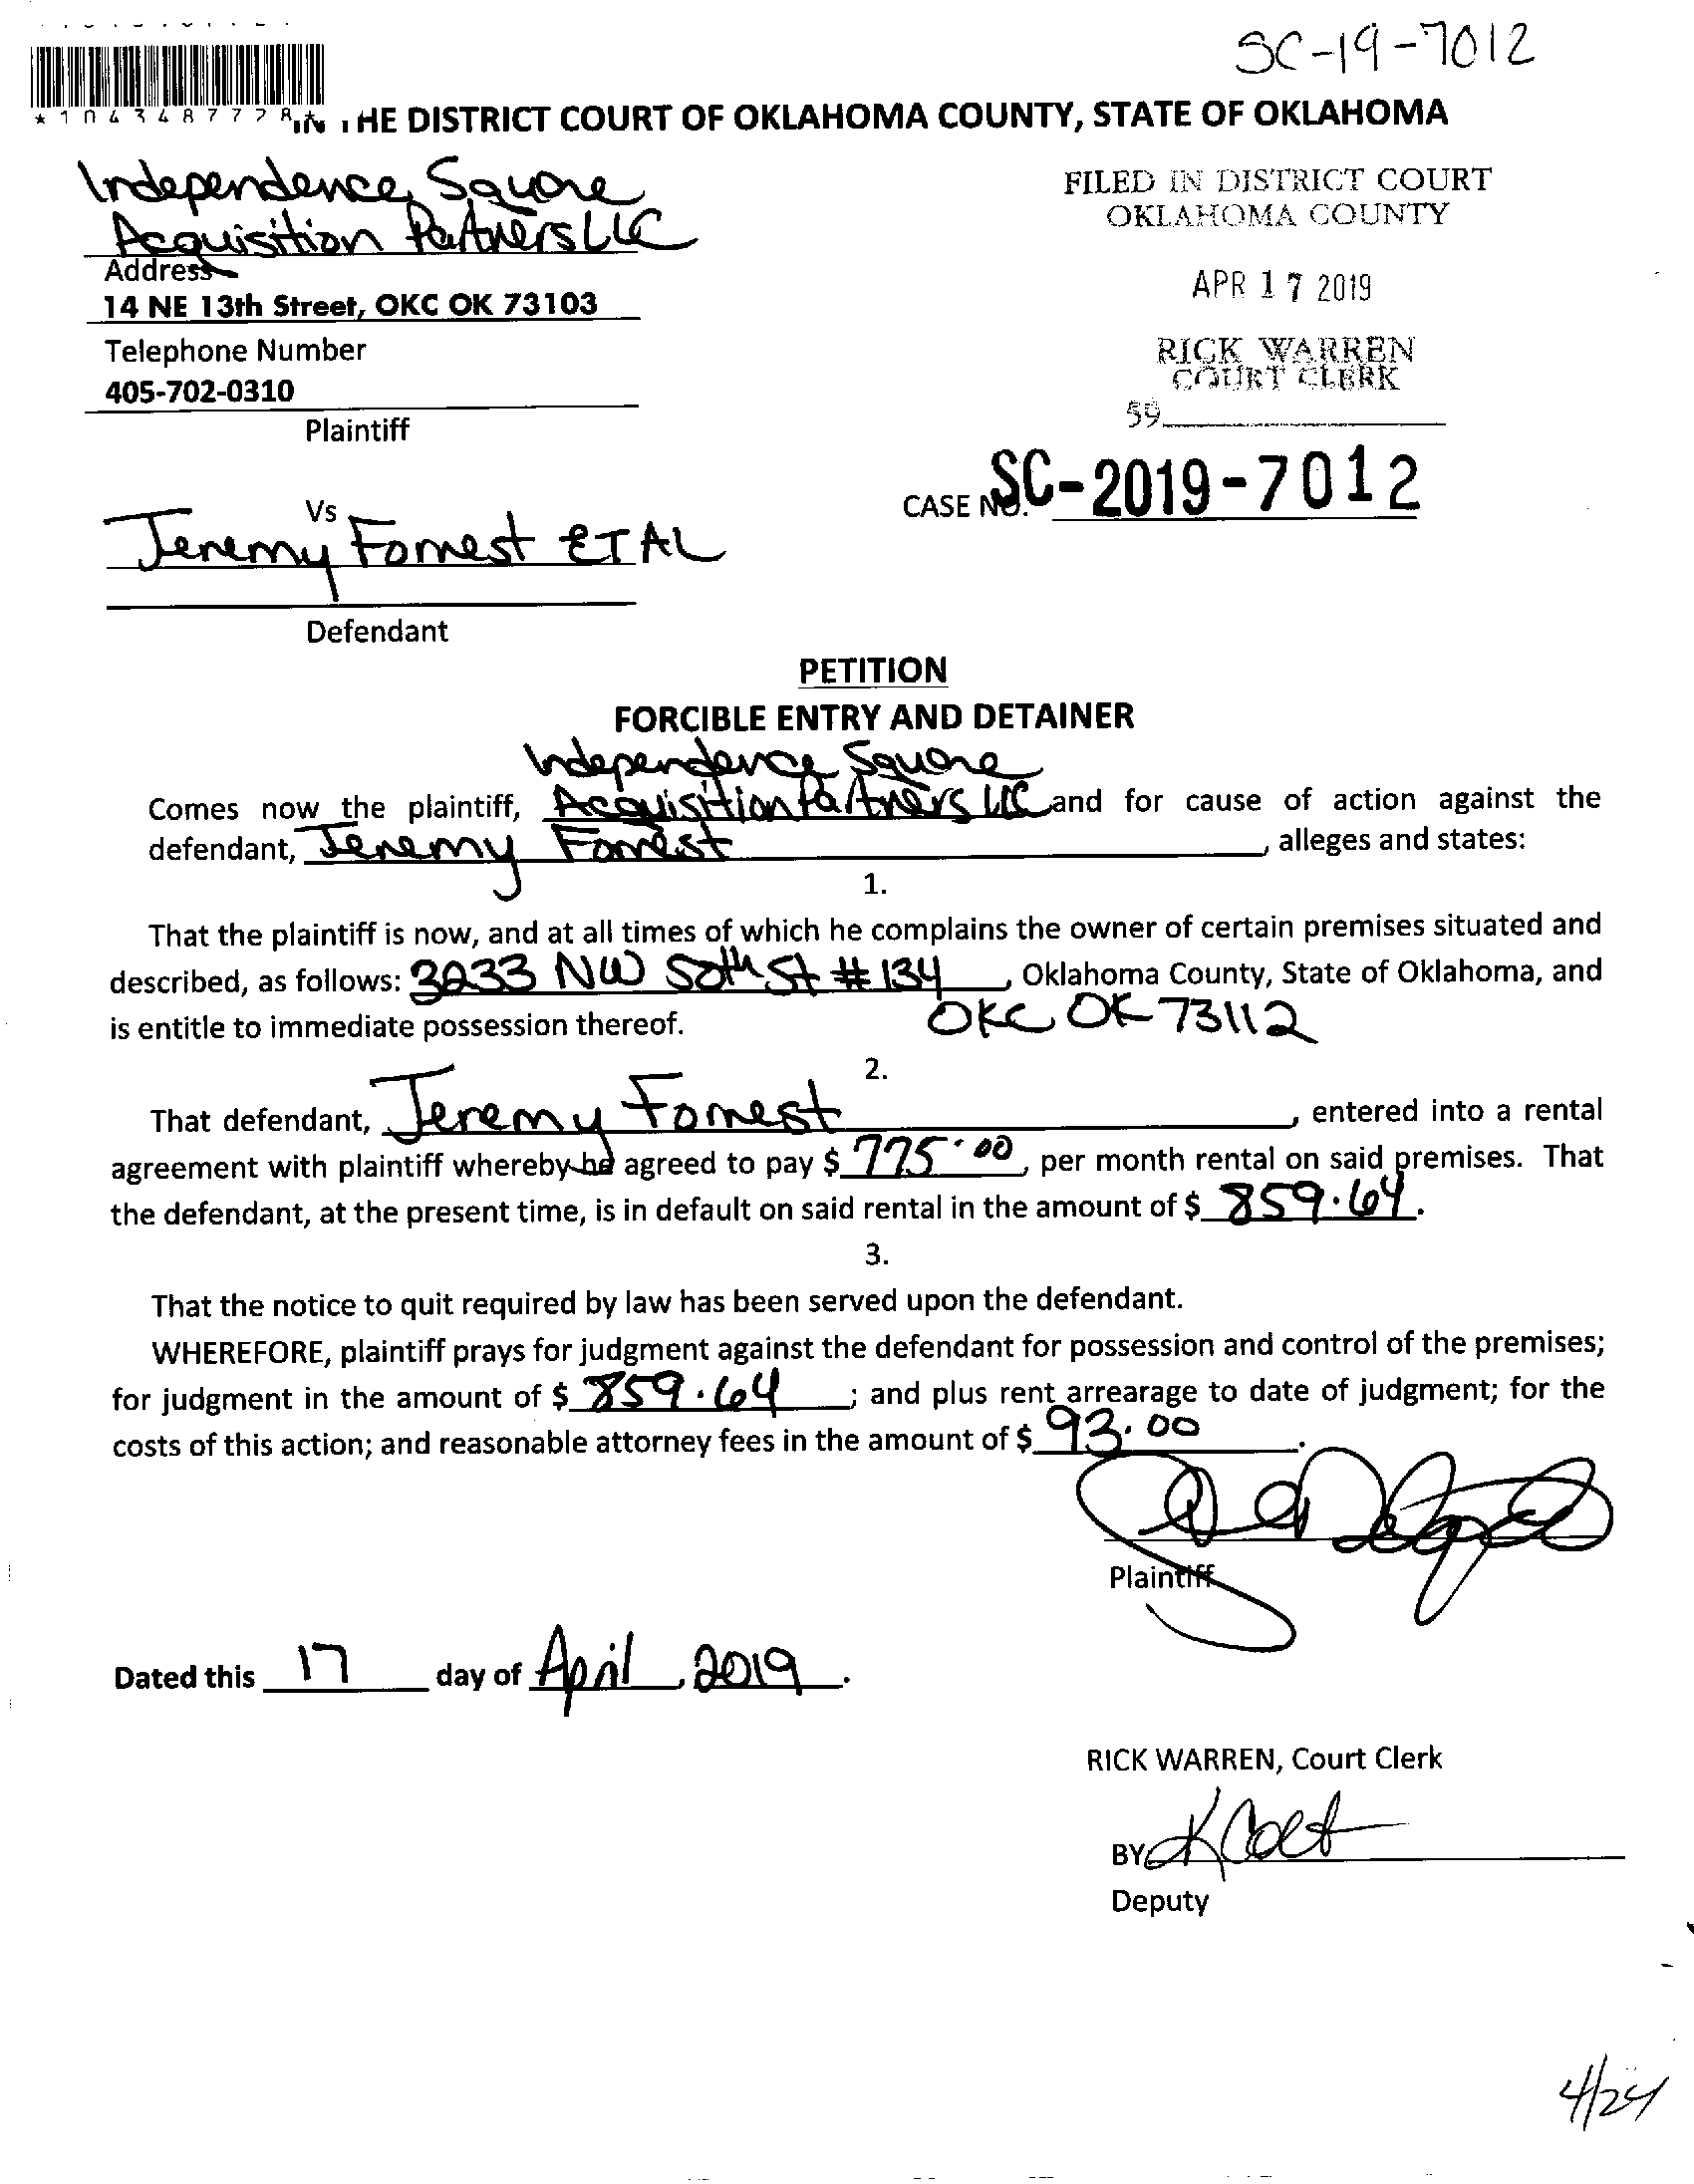 SC-19-7012
*1043487728*
IN THE DISTRICT COURT OF OKLAHOMA COUNTY, STATE OF OKLAHOMA
Independence Square
Acquisition Partners LLC
Address
14 NE 13th Street, OKC OK 73103
Telephone Number
405-702-0310
Plaintiff
FILED IN DISTRICT COURT
OKLAHOMA COUNTY
APR 17 2019
RICK WARREN
COURT CLERK
59
CASE NO. SC-2019-7012
Vs
Jeremy Forrest ET AL
Defendant
PETITION
FORCIBLE ENTRY AND DETAINER
Independence Square
Comes now the plaintiff, Acquisition Partners LLC and for cause of action against the
defendant, Jeremy Forrest, alleges and states:
1.
That the plaintiff is now, and at all times of which he complains the owner of certain premises situated and
described, as follows: 3233 NW 50th St # 134, Oklahoma County, State of Oklahoma, and
is entitle to immediate possession thereof. OKC OK 73112
2.
That defendant, Jeremy Forrest, entered into a rental
agreement with plaintiff whereby he agreed to pay $ 775.00, per month rental on said premises. That
the defendant, at the present time, is in default on said rental in the amount of $ 859.64.
3.
That the notice to quit required by law has been served upon the defendant.
WHEREFORE, plaintiff prays for judgment against the defendant for possession and control of the premises;
for judgment in the amount of $ 859.64; and plus rent arrearage to date of judgment; for the
costs of this action; and reasonable attorney fees in the amount of $ 93.00.
Plaintiff
Dated this 17 day of April, 2019.
RICK WARREN, Court Clerk
BY
Deputy
4/24